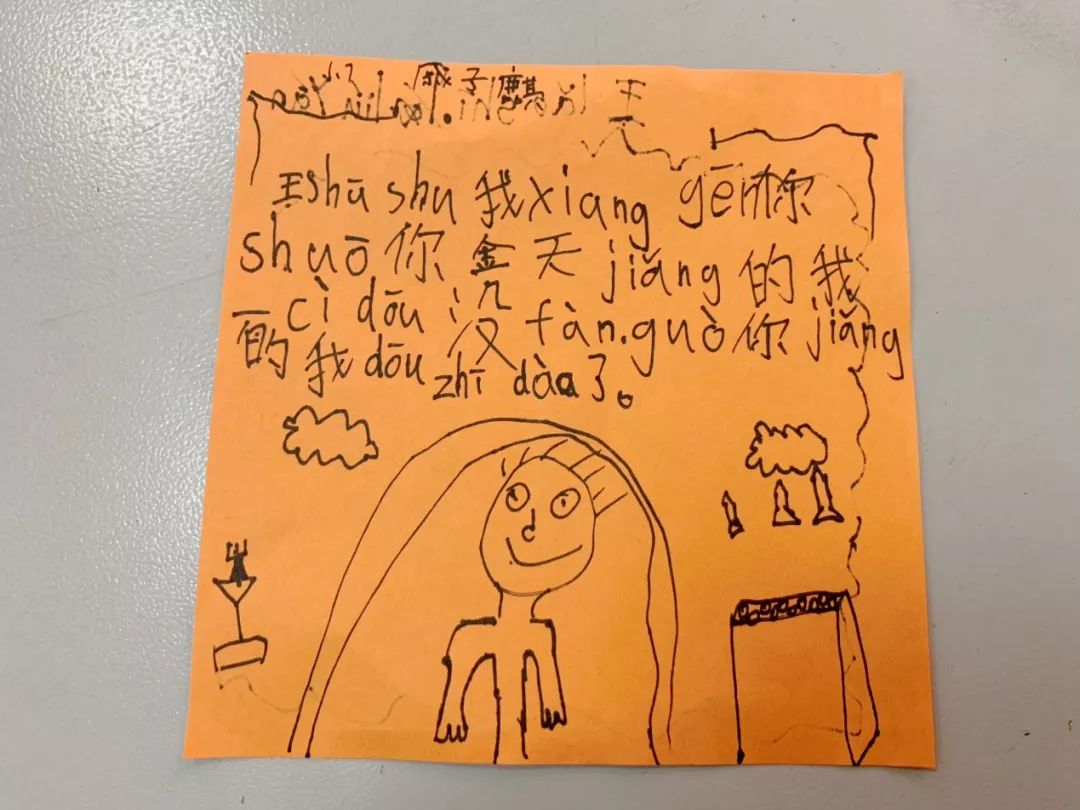 子麒
王
王shū shu 我xiang gēn你
shuō你金天jiǎng的我
一cì dōu没fàn.guò你jiǎng
的我dōu zhī dào了。